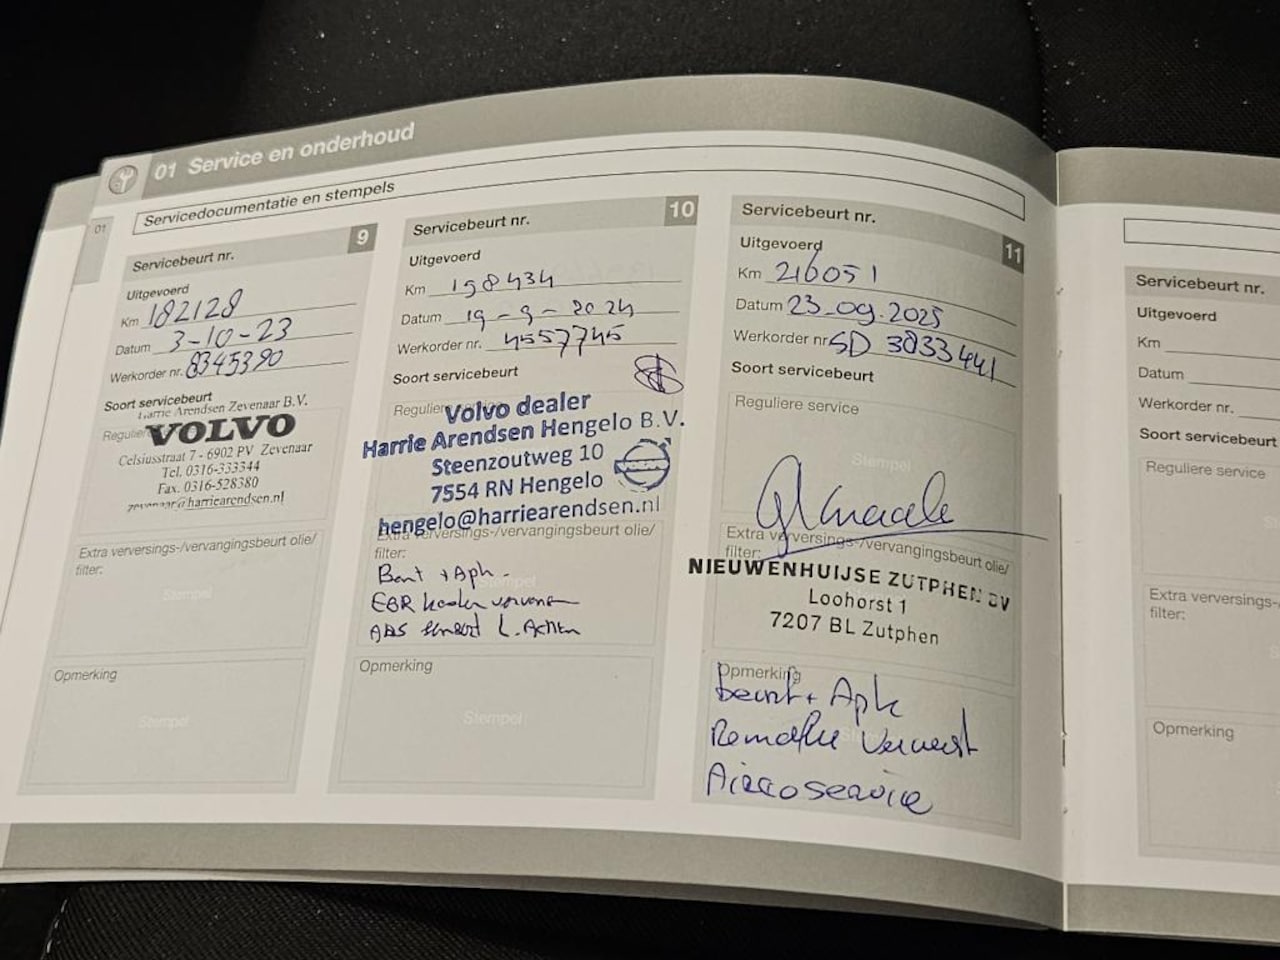 01 Service en onderhoud
Servicedocumentatie en stempels
01
Servicebeurt nr. 9
Uitgevoerd
Km 182128
Datum 3-10-23
Werkorder nr. 8345390
Soort servicebeurt
Harrie Arendsen Zevenaar B.V.
VOLVO
Celsiusstraat 7 - 6902 PV Zevenaar
Tel. 0316-333444
Fax. 0316-528380
zevenaar@harriearendsen.nl
Extra verversings-/vervangingsbeurt olie/
filter:
Stempel
Opmerking
Stempel
Servicebeurt nr. 10
Uitgevoerd
Km 198434
Datum 19-9-2024
Werkorder nr. 4557745
Soort servicebeurt
Reguliere
Volvo dealer
Harrie Arendsen Hengelo B.V.
Steenzoutweg 10
VOLVO
7554 RN Hengelo
hengelo@harriearendsen.nl
Extra verversings-/vervangingsbeurt olie/
filter:
Stempel
Beurt + Apk
EGR koeler vervangen
ABS sensor L. Achter
Opmerking
Stempel
Servicebeurt nr. 11
Uitgevoerd
Km 216051
Datum 23.09.2025
Werkorder nr. SD 3833441
Soort servicebeurt
Reguliere service
Stempel
Extra verversings-/vervangingsbeurt olie/
filter:
NIEUWENHUIJSE ZUTPHEN BV
Loohorst 1
7207 BL Zutphen
Opmerking
beurt + Apk
Remolie Ververst
Aircoservice
Servicebeurt nr.
Uitgevoerd
Km
Datum
Werkorder nr.
Soort servicebeurt
Reguliere service
Extra verversings-
filter:
Opmerking